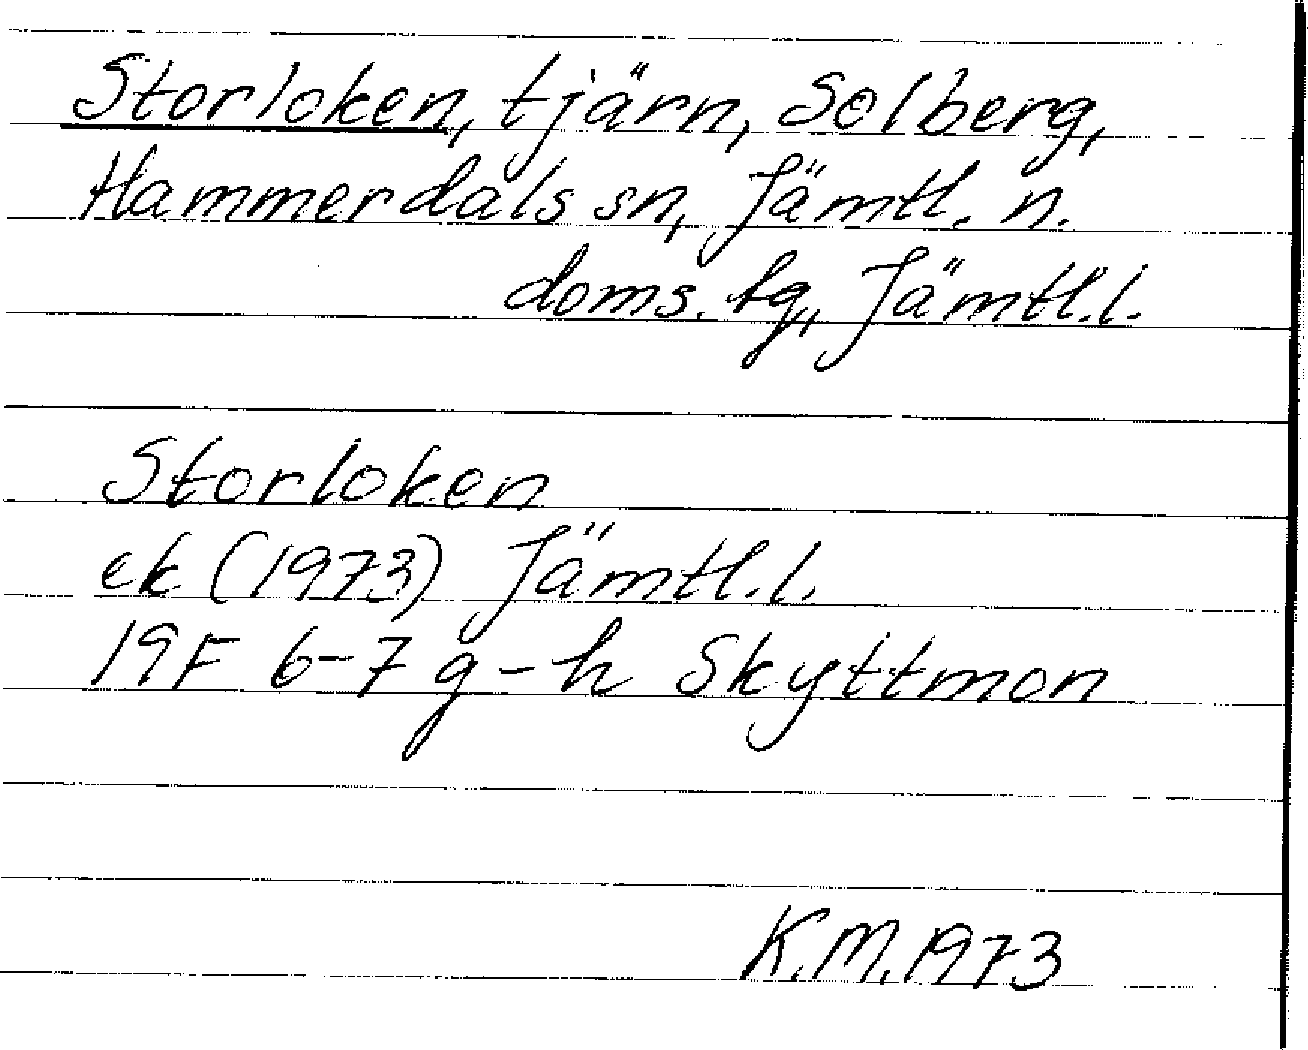 Storloken, tjärn, Solberg,
Hammerdals sn, Jämtl. n.
doms. tg, Jämtl.l.
Storloken
ek (1973) Jämtl.l.
19F 6-7 g-h Skyttmon
K.M.1973